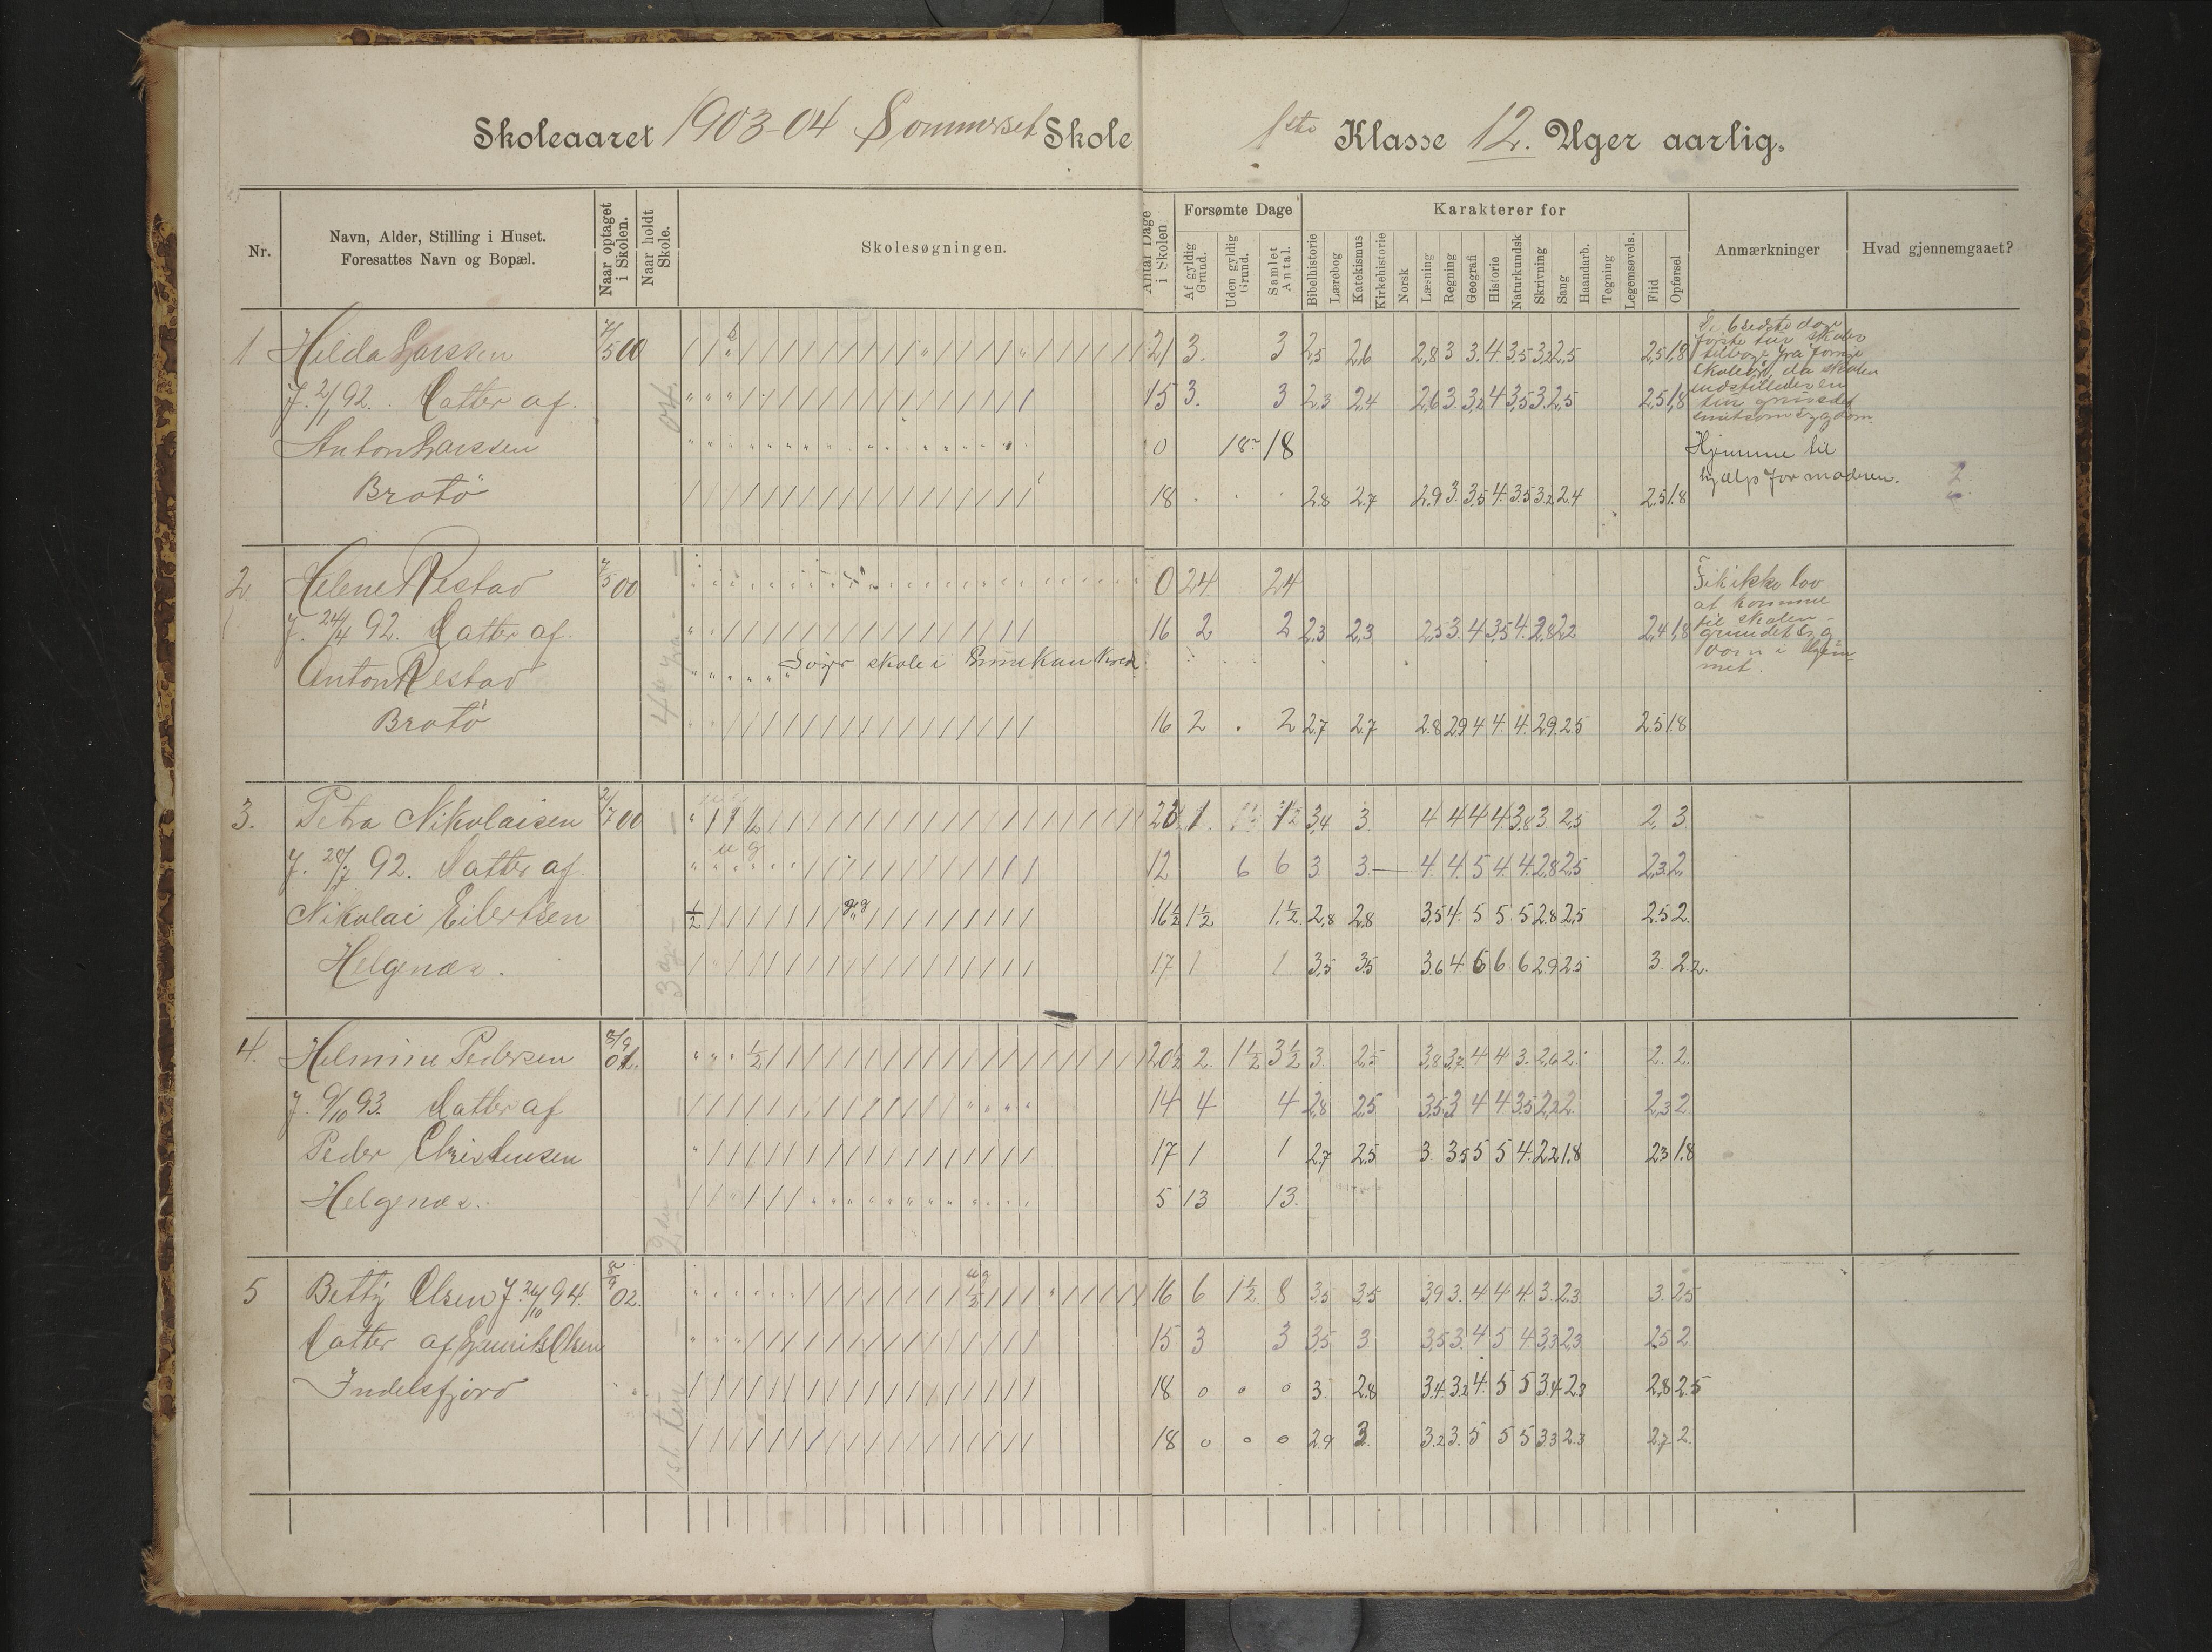 Skoleaaret 1903-04 Sommerset Skole
1ste Klasse 12. Uger aarlig.
Nr.
Navn, Alder, Stilling i Huset.
Foresattes Navn og Bopæl.
Naar optaget
i Skolen.
Naar holdt
Skole.
Skolesøgningen.
Antal Dage
i Skolen
Forsømte Dage
Af gyldig
Grund.
Uden gyldig
Grund.
Samlet
Antal.
Karakterer for
Bibelhistorie
Lærebog
Katekismus
Kirkehistorie
Norsk
Læsning
Regning
Geografi
Historie
Naturkundsk
Skrivning
Sang
Haandarb.
Tegning
Legemsøvels.
Flid
Opførsel
Anmærkninger
Hvad gjennemgaaet?
1 Hilda Larssen 7/5 00 21 3. 3 2,5 2,6 2,8 3 3. 4 3,5 3,2 2,5 2,5 1,8
f. 2/1 92. Datter af 15 3. 3 2,3 2,4 2,6 3. 3,2 4 3,5 3. 2,5 2,5 1,8
Anton Larssen 0 18 18 Hjemme til
hjælp for moderen.
Brotø 18 2.8 2.7 2.9 3. 3.5 4. 3.5 3.2 2.4 2.5 1.8
2 Helene Restad 7/5 00 0 24. 24 Fik ikke lov
at komme
til skolen
f. 24/4 92. Datter af 16 2 2 2,3 2,3 2,5 3. 4 3,5 4. 2,8 2,2 2,4 1,8
Anton Restad skole i
met.
Brotø 16 2 2 2.7 2.7 2.8 2.9 4 4. 4. 2.9. 2.5 2.5 1.8
3. Petra Nikolaisen 2/7 00 1. 3,4 3. 4 4 4 4. 3,8 3 2,5 2, 3
f. 28/7 92. Datter af 12 6 6 3 3 4. 4. 5 4. 4. 2,8 2,5 2,3 2,
Nikolai Eilertsen 16½ 1½ 1.½ 2,8 2,8 3,5 4. 5 5 5 2.8 2.5 2.5 2.
Helgenæs. 17 1 1 3,5 3.5 3.6 4. 6 6 6 2.9 2.5 3. 2.2.
4. Helmine Pedersen 20½ 2. 1½ 3½ 3. 2,5 3,8 3,7 4 4 3. 2,6 2. 2. 2.
f. 9/10 93. Datter af 14 4 4 2,8 2,5 3,5 3 4 4. 3,5 2,2 2. 2,3 2
Peder Christensen 17 1 1 2.7 2.5 3. 3.5 5 5 4. 2.2 1.8 2.3 1.8
Helgenæs. 5 13 13.
5 Betty Olsen f. 24/10 94. 02. 16 6 1½ 8 3,5 3,5 3,9 3. 4. 4 4. 3. 2,3 3. 2,5
Datter af Olsen 15 3 3 3,5 3. 3,5 3. 4 5 4. 3,3 2,3 2,5 2
Indelsfjord 18 0 0 0 3. 2.8 3.4. 3.2 4. 5 5 3.4 2.3 2.8 2.5
18 0 0 0 2.9 3. 3.2 3. 5 5 5 3.3 2.3 2.7 2.